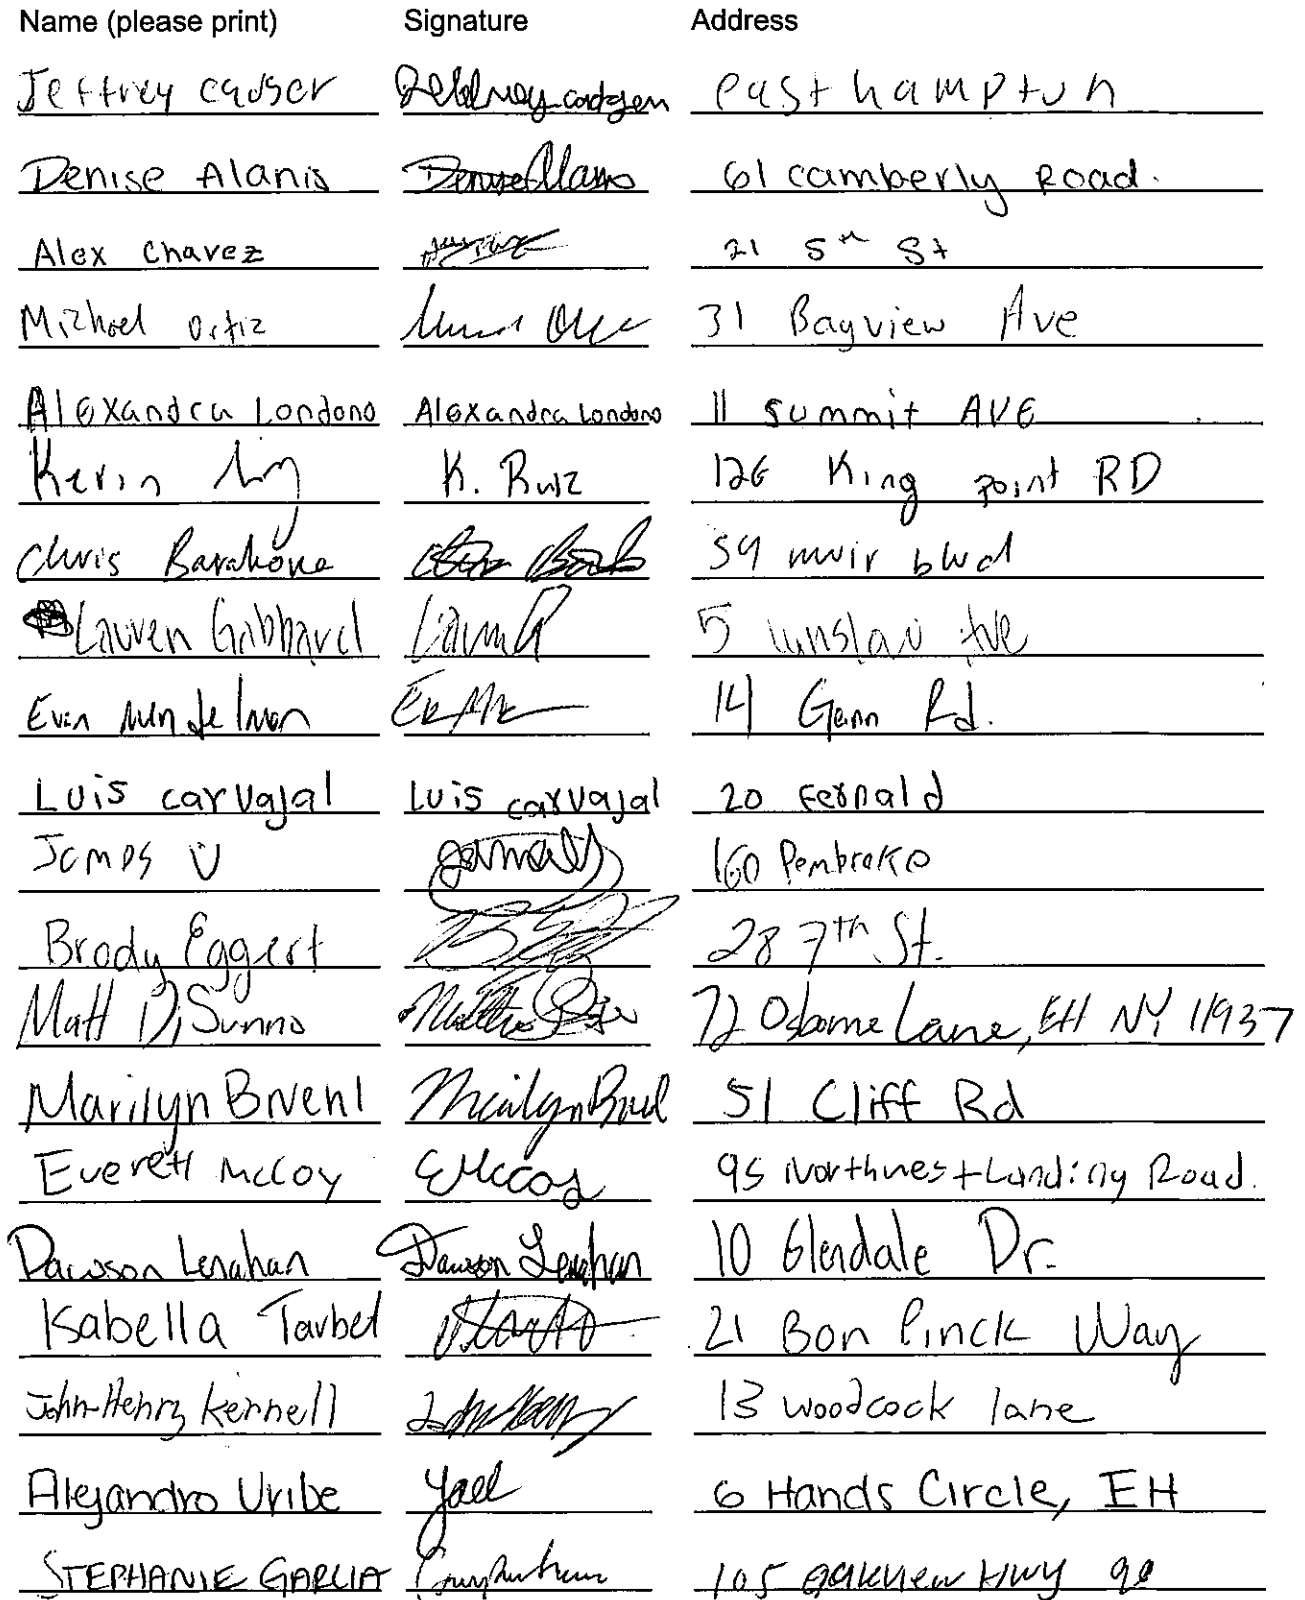 Name (please print) Signature Address
Jeffrey easthampton
Denise Alanis Denise Alanis 61 camberly Road.
Alex Chavez 21 5th St
Michael Ortiz 31 Bayview Ave
Alexandra Londono Alexandra Londono 11 summit AVE
Kevin K. Ruiz 126 King point RD
Chris Barahona 59 muir blvd
Lauren Gabbard 5 Ave
Evan 14 Gann Rd.
Luis carvajal Luis carvajal 20 Fernald
James U 160 Pembroke
Brody Eggert 28 7th St.
Matt DiSunno 72 Osborne Lane, EH NY 11937
Marilyn Bruehl Marilyn 51 Cliff Rd
Everett McCoy EMccoy 95 Northwest Landing Road.
Dawson Lenahan Dawson Lenahan 10 Glendale Dr.
Isabella Tarbet 21 Bon Pinck Way
John-Henry Kernell 13 woodcock lane
Alejandro Uribe Yael 6 Hands Circle, EH
STEPHANIE GARCIA 105 oakview Hwy